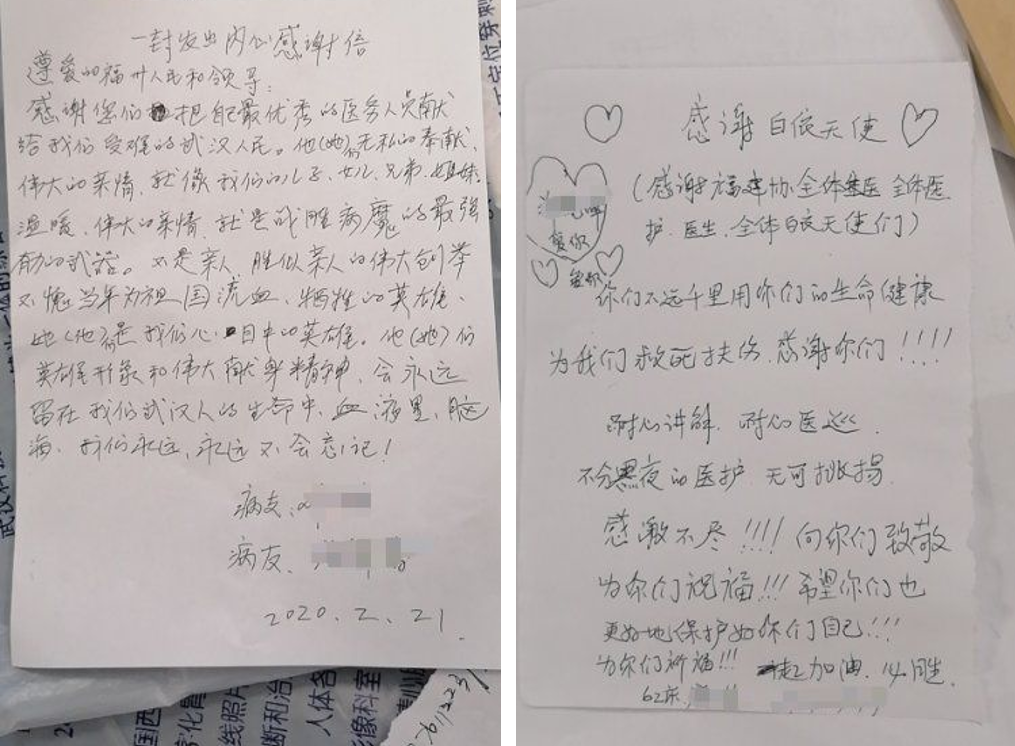 一封发出内心感谢信
尊爱的福州人民和领导:
感谢您们把自己最优秀的医务人员献
给我们受难的武汉人民。他(她)们无私的奉献、
伟大的亲情、就像我们的儿子、女儿、兄弟、姐妹、
温暖、伟大的亲情、就是战胜病魔的最强
有力的武器。不是亲人、胜似亲人的伟大创举
不愧当年为祖国流血、牺牲的英雄、
她(他)们是我们心目中的英雄。他(她)们
英雄形象和伟大献身精神、会永远
留在我们武汉人的生命中、血液里、脑
海、我们永远、永远不会忘记!
病友:
病友、
2020.2.21.
感谢白衣天使
(感谢福建协全体医全体医
护、医生、全体白衣天使们)
爱你
你们不远千里用你们的生命健康
为我们救死扶伤、感谢你们!!!!
耐心讲解、耐心医巡.
不分黑夜的医护、无可挑扬.
感激不尽!!!!向你们致敬
为你们祝福!!!希望你们也
更好地保护好你们自己!!!
为你们祈福!!! 一起加油、必胜.
62床、
人体各
影像科室
断和治
线照片
国西